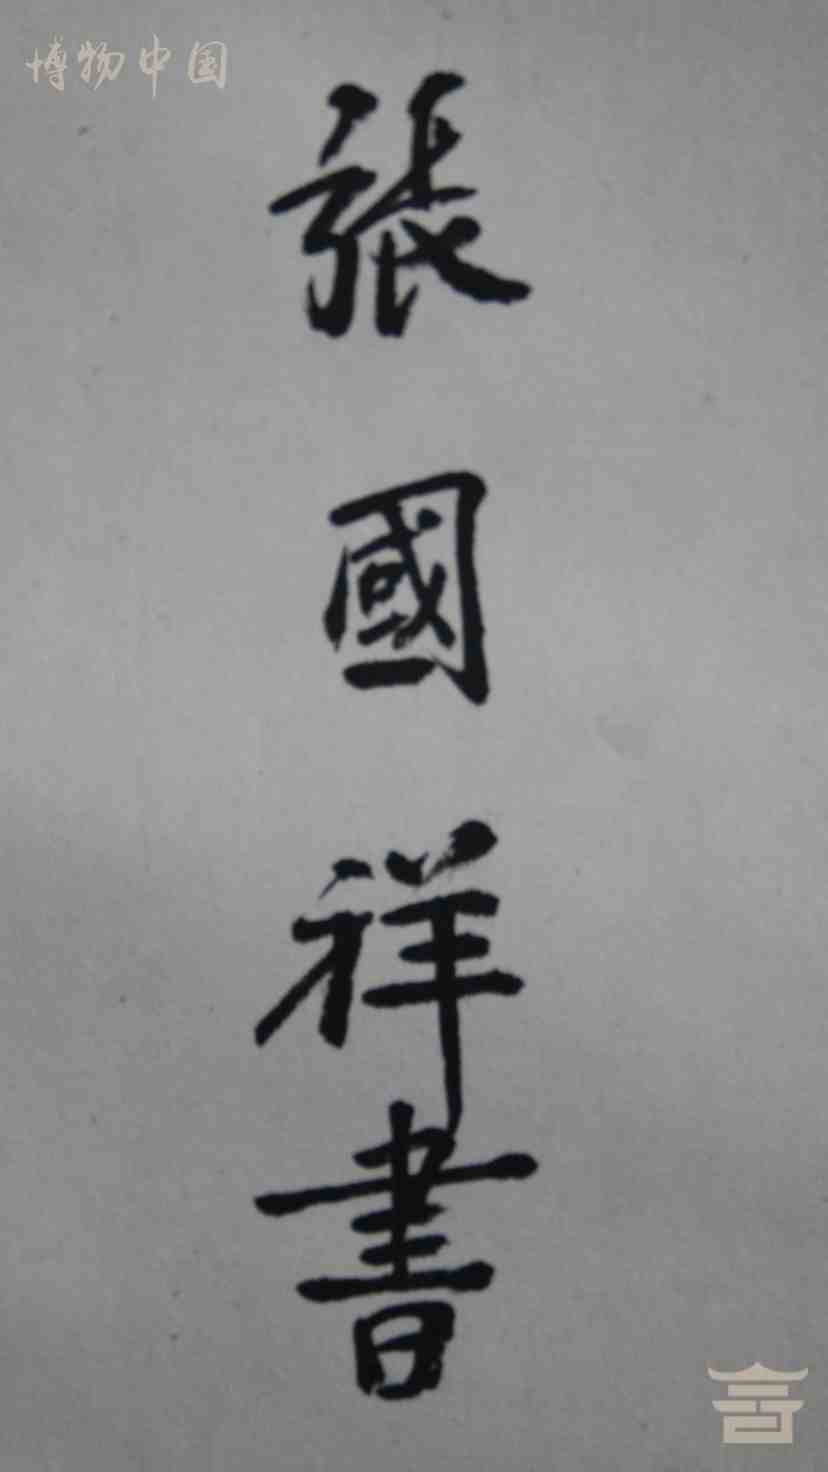 博物中国
張國祥書